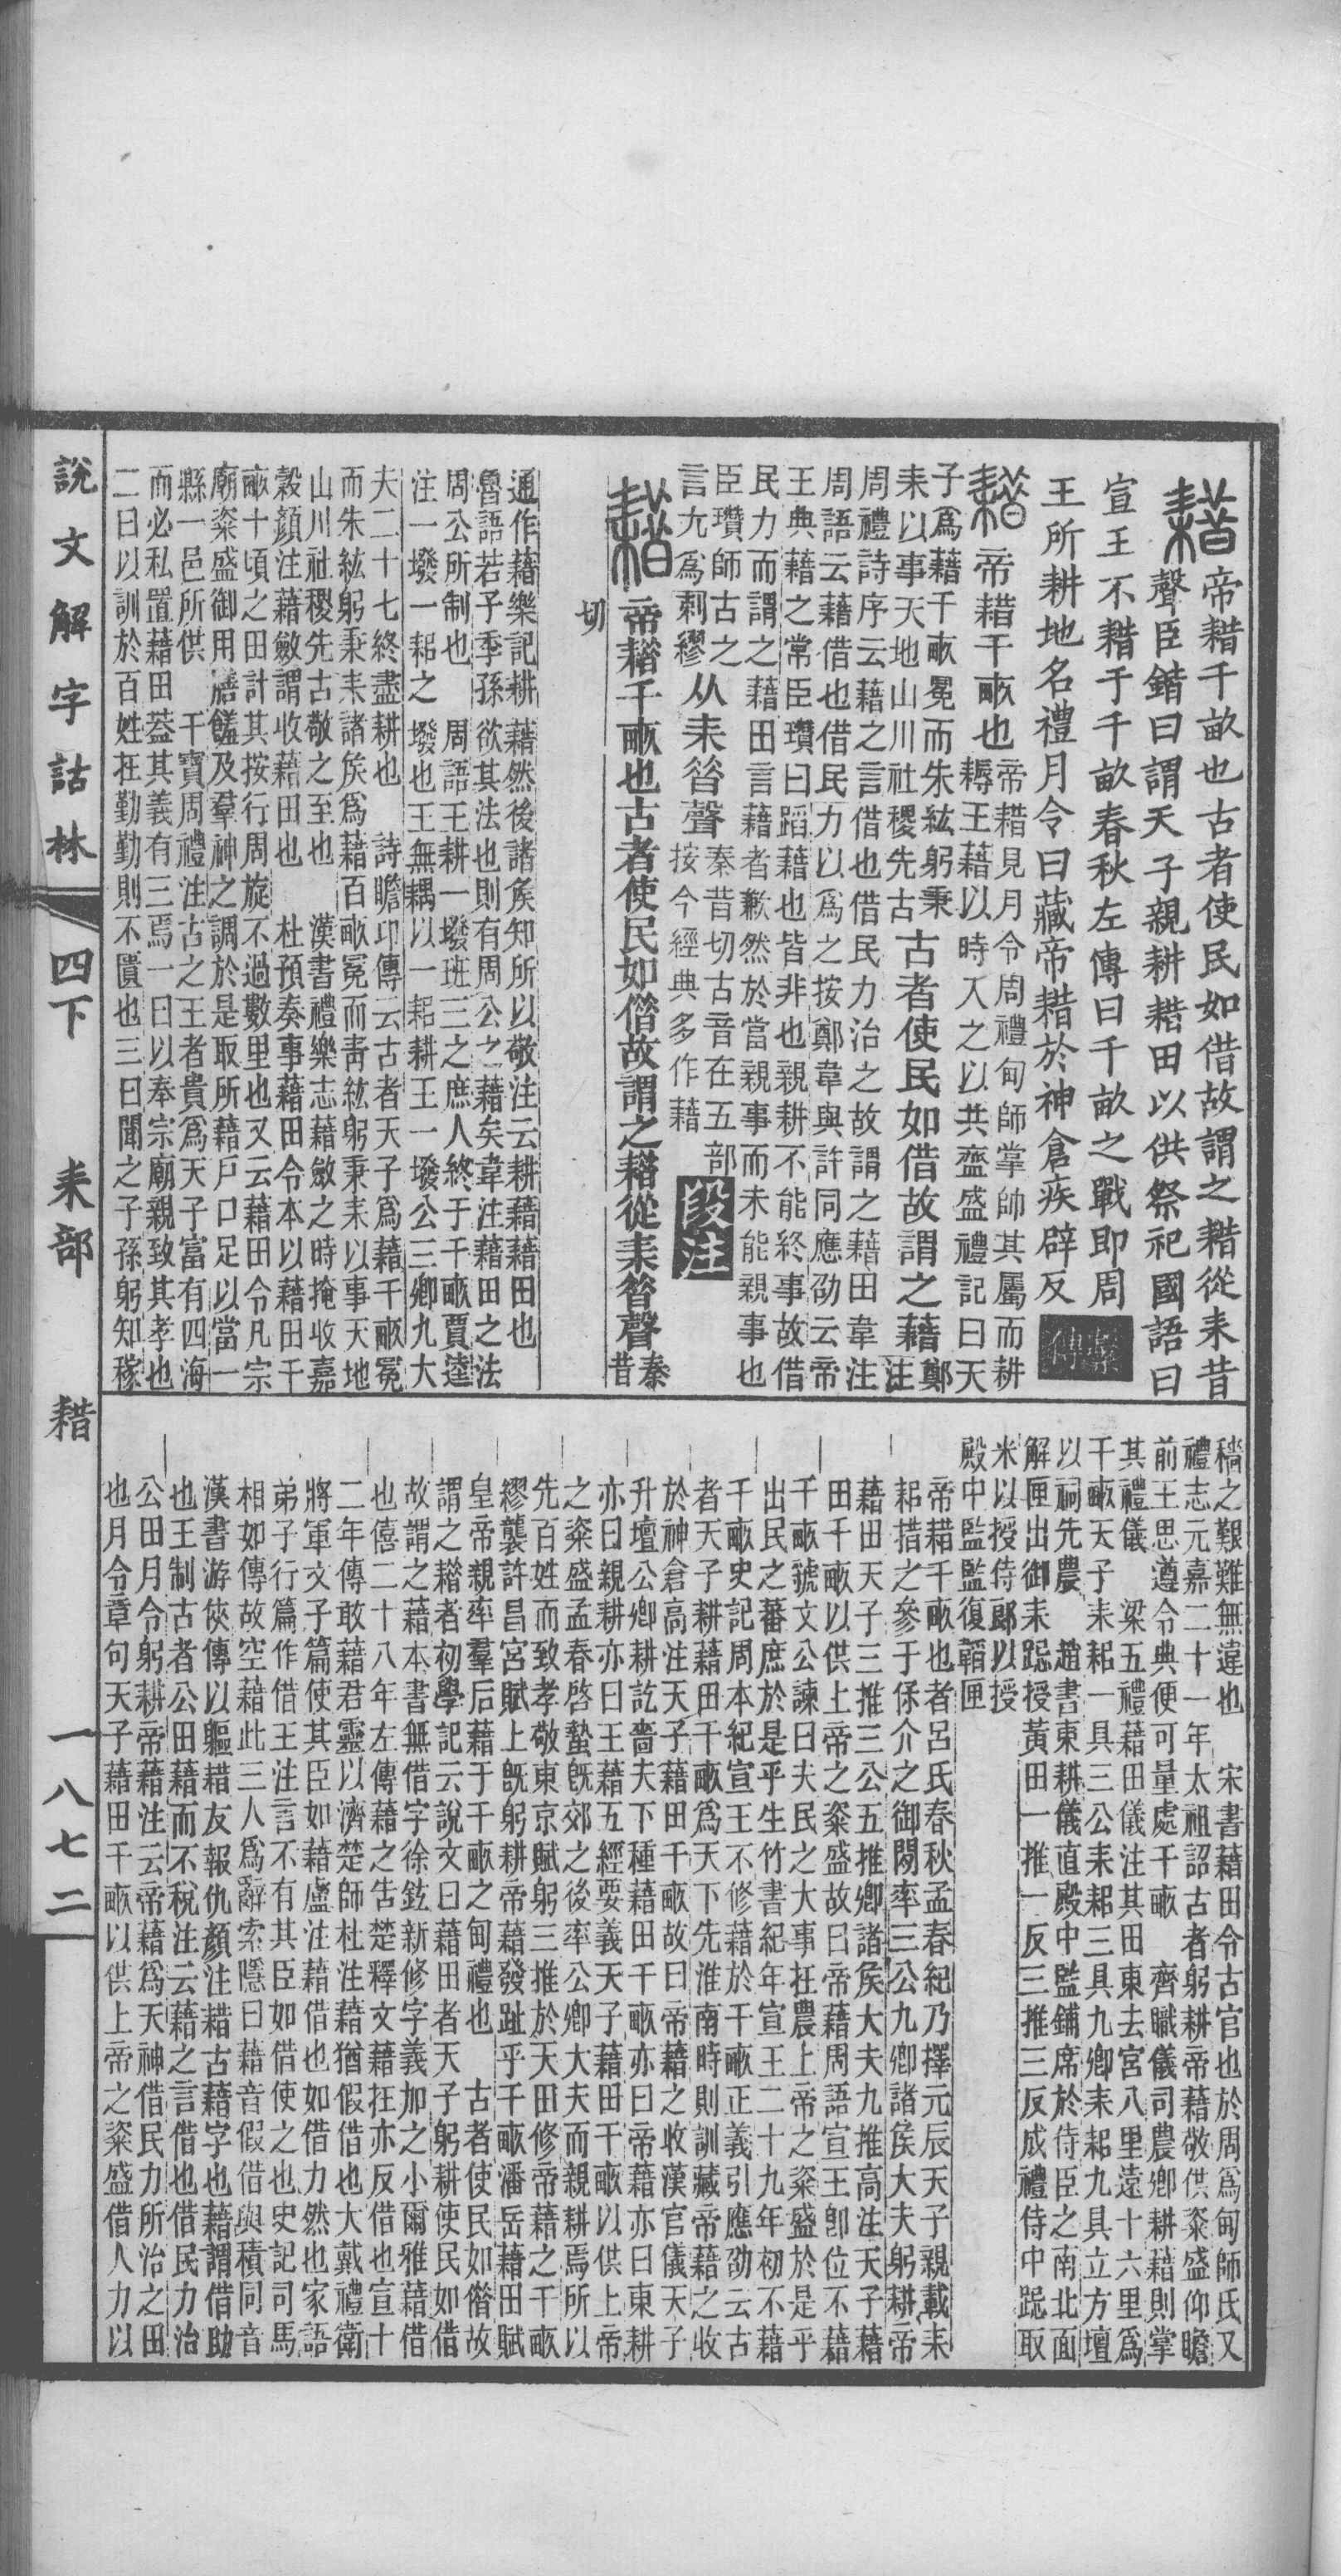 帝耤千畝也古者使民如借故謂之耤從耒昔
聲臣鍇曰謂天子親耕耤田以供祭祀國語曰
宣王不耤于千畝春秋左傳曰千畝之戰即周
王所耕地名禮月令曰藏帝耤於神倉疾辟反
繫傳
帝耤千畝也
帝耤見月令周禮甸師掌帥其屬而耕
耨王藉以時入之以共齍盛禮記曰天
子爲藉千畝冕而朱紘躬秉
耒以事天地山川社稷先古
古者使民如借故謂之藉
鄭
注
周禮詩序云藉之言借也借民力治之故謂之藉田韋注
周語云藉借也借民力以爲之按鄭韋與許同應劭云帝
王典藉之常臣瓚曰蹈藉也皆非也親耕不能終事故借
民力而謂之藉田言藉者歉然於當親事而未能親事也
臣瓚師古之
言尢爲剌繆
从耒昝聲
秦昔切古音在五部
按今經典多作藉
段注
帝耤千畝也古者使民如偕故謂之耤從耒昝聲
秦
昔
切
通作藉樂記耕藉然後諸矦知所以敬注云耕藉藉田也
魯語若子季孫欲其法也則有周公之藉矣韋注藉田之法
周公所制也 周語王耕一墢班三之庶人終于千畝賈逵
注一墢一耜之墢也王無耦以一耜耕王一墢公三卿九大
夫二十七終盡耕也 詩瞻卬傳云古者天子爲藉千畝冕
而朱紘躬秉耒諸矦爲藉百畝冕而靑紘躬秉耒以事天地
山川社稷先古敬之至也 漢書禮樂志藉斂之時掩收嘉
穀顔注藉斂謂收藉田也 杜預奏事藉田令本以藉田千
畝十頃之田計其按行周旋不過數里也又云藉田令凡宗
廟粢盛御用膳饈及羣神之調於是取所藉戶口足以當一
縣一邑所供 干寶周禮注古之王者貴爲天子富有四海
而必私置藉田葢其義有三焉一曰以奉宗廟親致其孝也
二曰以訓於百姓在勤勤則不匱也三曰聞之子孫躬知稼
穡之艱難無違也 宋書藉田令古官也於周爲甸師氏又
禮志元嘉二十一年太祖詔古者躬耕帝藉敬供粢盛仰瞻
前王思遵令典便可量處千畝 齊職儀司農卿耕藉則掌
其禮儀 梁五禮藉田儀注其田東去宮八里遠十六里爲
千畝天子耒耜一具三公耒耜三具九卿耒耜九具立方壇
以祠先農 趙書東耕儀直殿中監鋪席於侍臣之南北面
解匣出御耒跽授黃田一推一反三推三反成禮侍中跽取
米以授侍郞以授
殿中監監復韜匣
帝耤千畝也者呂氏春秋孟春紀乃擇元辰天子親載耒
耜措之參于保介之御閒率三公九卿諸矦大夫躬耕帝
藉田天子三推三公五推卿諸矦大夫九推高注天子藉
田千畝以供上帝之粢盛故曰帝藉周語宣王卽位不藉
千畝虢文公諫曰夫民之大事在農上帝之粢盛於是乎
出民之蕃庶於是乎生竹書紀年宣王二十九年初不藉
千畝史記周本紀宣王不修藉於千畝正義引應劭云古
者天子耕藉田千畝爲天下先淮南時則訓藏帝藉之收
於神倉高注天子藉田千畝故曰帝藉之收漢官儀天子
升壇公卿耕訖嗇夫下種藉田千畝亦曰帝藉亦曰東耕
亦曰親耕亦曰王藉五經要義天子藉田千畝以供上帝
之粢盛孟春啓蟄旣郊之後率公卿大夫而親耕焉所以
先百姓而致孝敬東京賦躬三推於天田修帝藉之千畝
繆襲許昌宮賦上旣躬耕帝藉發趾乎千畝潘岳藉田賦
皇帝親率羣后藉于千畝之甸禮也 古者使民如偺故
謂之耤者初學記云說文曰藉田者天子躬耕使民如借
故謂之藉本書無借字徐鉉新修字義加之小爾雅藉借
也僖二十八年左傳藉之告楚釋文藉在亦反借也宣十
二年傳敢藉君靈以濟楚師杜注藉猶假借也大戴禮衛
將軍文子篇使其臣如藉盧注藉借也如借力然也家語
弟子行篇作借王注言不有其臣如借使之也史記司馬
相如傳故空藉此三人爲辭索隱曰藉音假借與積同音
漢書游俠傳以軀耤友報仇顔注耤古藉字也藉謂借助
也王制古者公田藉而不稅注云藉之言借也借民力治
公田月令躬耕帝藉注云帝藉爲天神借民力所治之田
也月令章句天子藉田千畝以供上帝之粢盛借人力以
說文解字詁林
四下
耒部
耤
一八七二